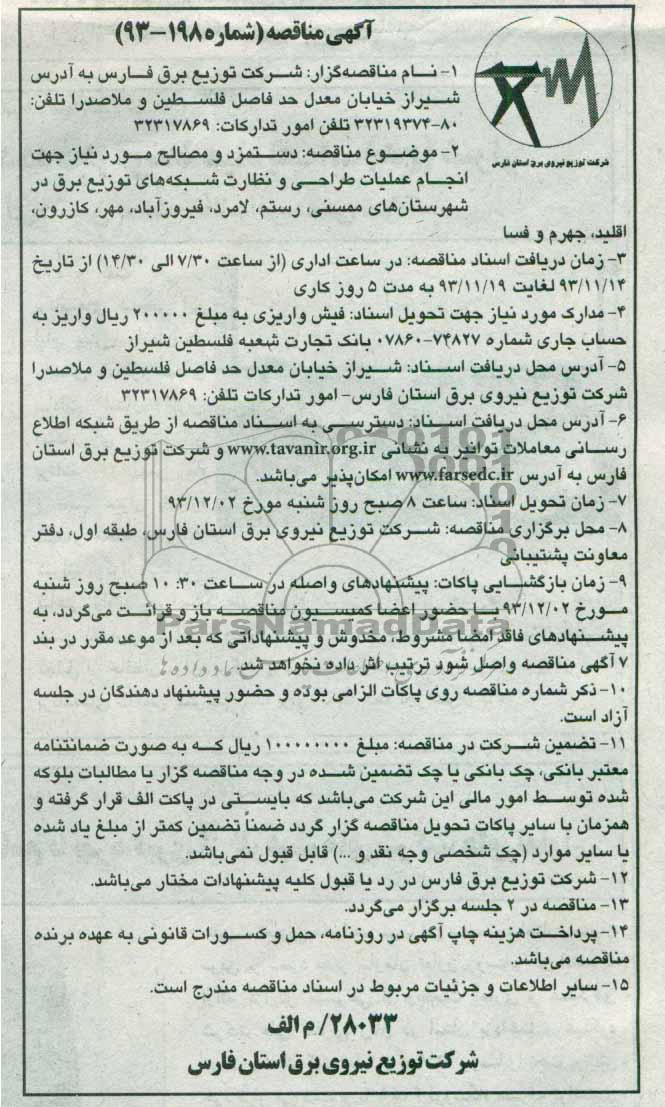 آگهی مناقصه (شماره ۱۹۸-۹۳)
۱- نام مناقصه‌گزار: شرکت توزیع برق فارس به آدرس
شیراز خیابان معدل حد فاصل فلسطین و ملاصدرا تلفن:
۸۰-۳۲۳۱۹۳۷۴ تلفن امور تدارکات: ۳۲۳۱۷۸۶۹
شرکت توزیع نیروی برق استان فارس
۲- موضوع مناقصه: دستمزد و مصالح مورد نیاز جهت
انجام عملیات طراحی و نظارت شبکه‌های توزیع برق در
شهرستان‌های ممسنی، رستم، لامرد، فیروزآباد، مهر، کازرون،
اقلید، جهرم و فسا
۳- زمان دریافت اسناد مناقصه: در ساعت اداری (از ساعت ۷/۳۰ الی ۱۴/۳۰) از تاریخ
۹۳/۱۱/۱۴ لغایت ۹۳/۱۱/۱۹ به مدت ۵ روز کاری
۴- مدارک مورد نیاز جهت تحویل اسناد: فیش واریزی به مبلغ ۲۰۰۰۰۰ ریال واریز به
حساب جاری شماره ۷۴۸۲۷-۰۷۸۶۰ بانک تجارت شعبه فلسطین شیراز
۵- آدرس محل دریافت اسناد: شیراز خیابان معدل حد فاصل فلسطین و ملاصدرا
شرکت توزیع نیروی برق استان فارس- امور تدارکات تلفن: ۳۲۳۱۷۸۶۹
۶- آدرس محل دریافت اسناد: دسترسی به اسناد مناقصه از طریق شبکه اطلاع
رسانی معاملات توانیر به نشانی www.tavanir.org.ir و شرکت توزیع برق استان
فارس به آدرس www.farsedc.ir امکان‌پذیر می‌باشد.
۷- زمان تحویل اسناد: ساعت ۸ صبح روز شنبه مورخ ۹۳/۱۲/۰۲
۸- محل برگزاری مناقصه: شرکت توزیع نیروی برق استان فارس، طبقه اول، دفتر
معاونت پشتیبانی
۹- زمان بازگشایی پاکات: پیشنهادهای واصله در ساعت ۱۰:۳۰ صبح روز شنبه
مورخ ۹۳/۱۲/۰۲ با حضور اعضا کمیسیون مناقصه باز و قرائت می‌گردد، به
پیشنهادهای فاقد امضا مشروط، مخدوش و پیشنهاداتی که بعد از موعد مقرر در بند
۷ آگهی مناقصه واصل شود ترتیب اثر داده نخواهد شد.
ParsNamadData
۱۰- ذکر شماره مناقصه روی پاکات الزامی بوده و حضور پیشنهاد دهندگان در جلسه
آزاد است.
۱۱- تضمین شرکت در مناقصه: مبلغ ۱۰۰۰۰۰۰۰۰ ریال که به صورت ضمانتنامه
معتبر بانکی، چک بانکی یا چک تضمین شده در وجه مناقصه گزار یا مطالبات بلوکه
شده توسط امور مالی این شرکت می‌باشد که بایستی در پاکت الف قرار گرفته و
همزمان با سایر پاکات تحویل مناقصه گزار گردد ضمناً تضمین کمتر از مبلغ یاد شده
یا سایر موارد (چک شخصی وجه نقد و ...) قابل قبول نمی‌باشد.
۱۲- شرکت توزیع برق فارس در رد یا قبول کلیه پیشنهادات مختار می‌باشد.
۱۳- مناقصه در ۲ جلسه برگزار می‌گردد.
۱۴- پرداخت هزینه چاپ آگهی در روزنامه، حمل و کسورات قانونی به عهده برنده
مناقصه می‌باشد.
۱۵- سایر اطلاعات و جزئیات مربوط در اسناد مناقصه مندرج است.
۲۸۰۳۳/م الف
شرکت توزیع نیروی برق استان فارس